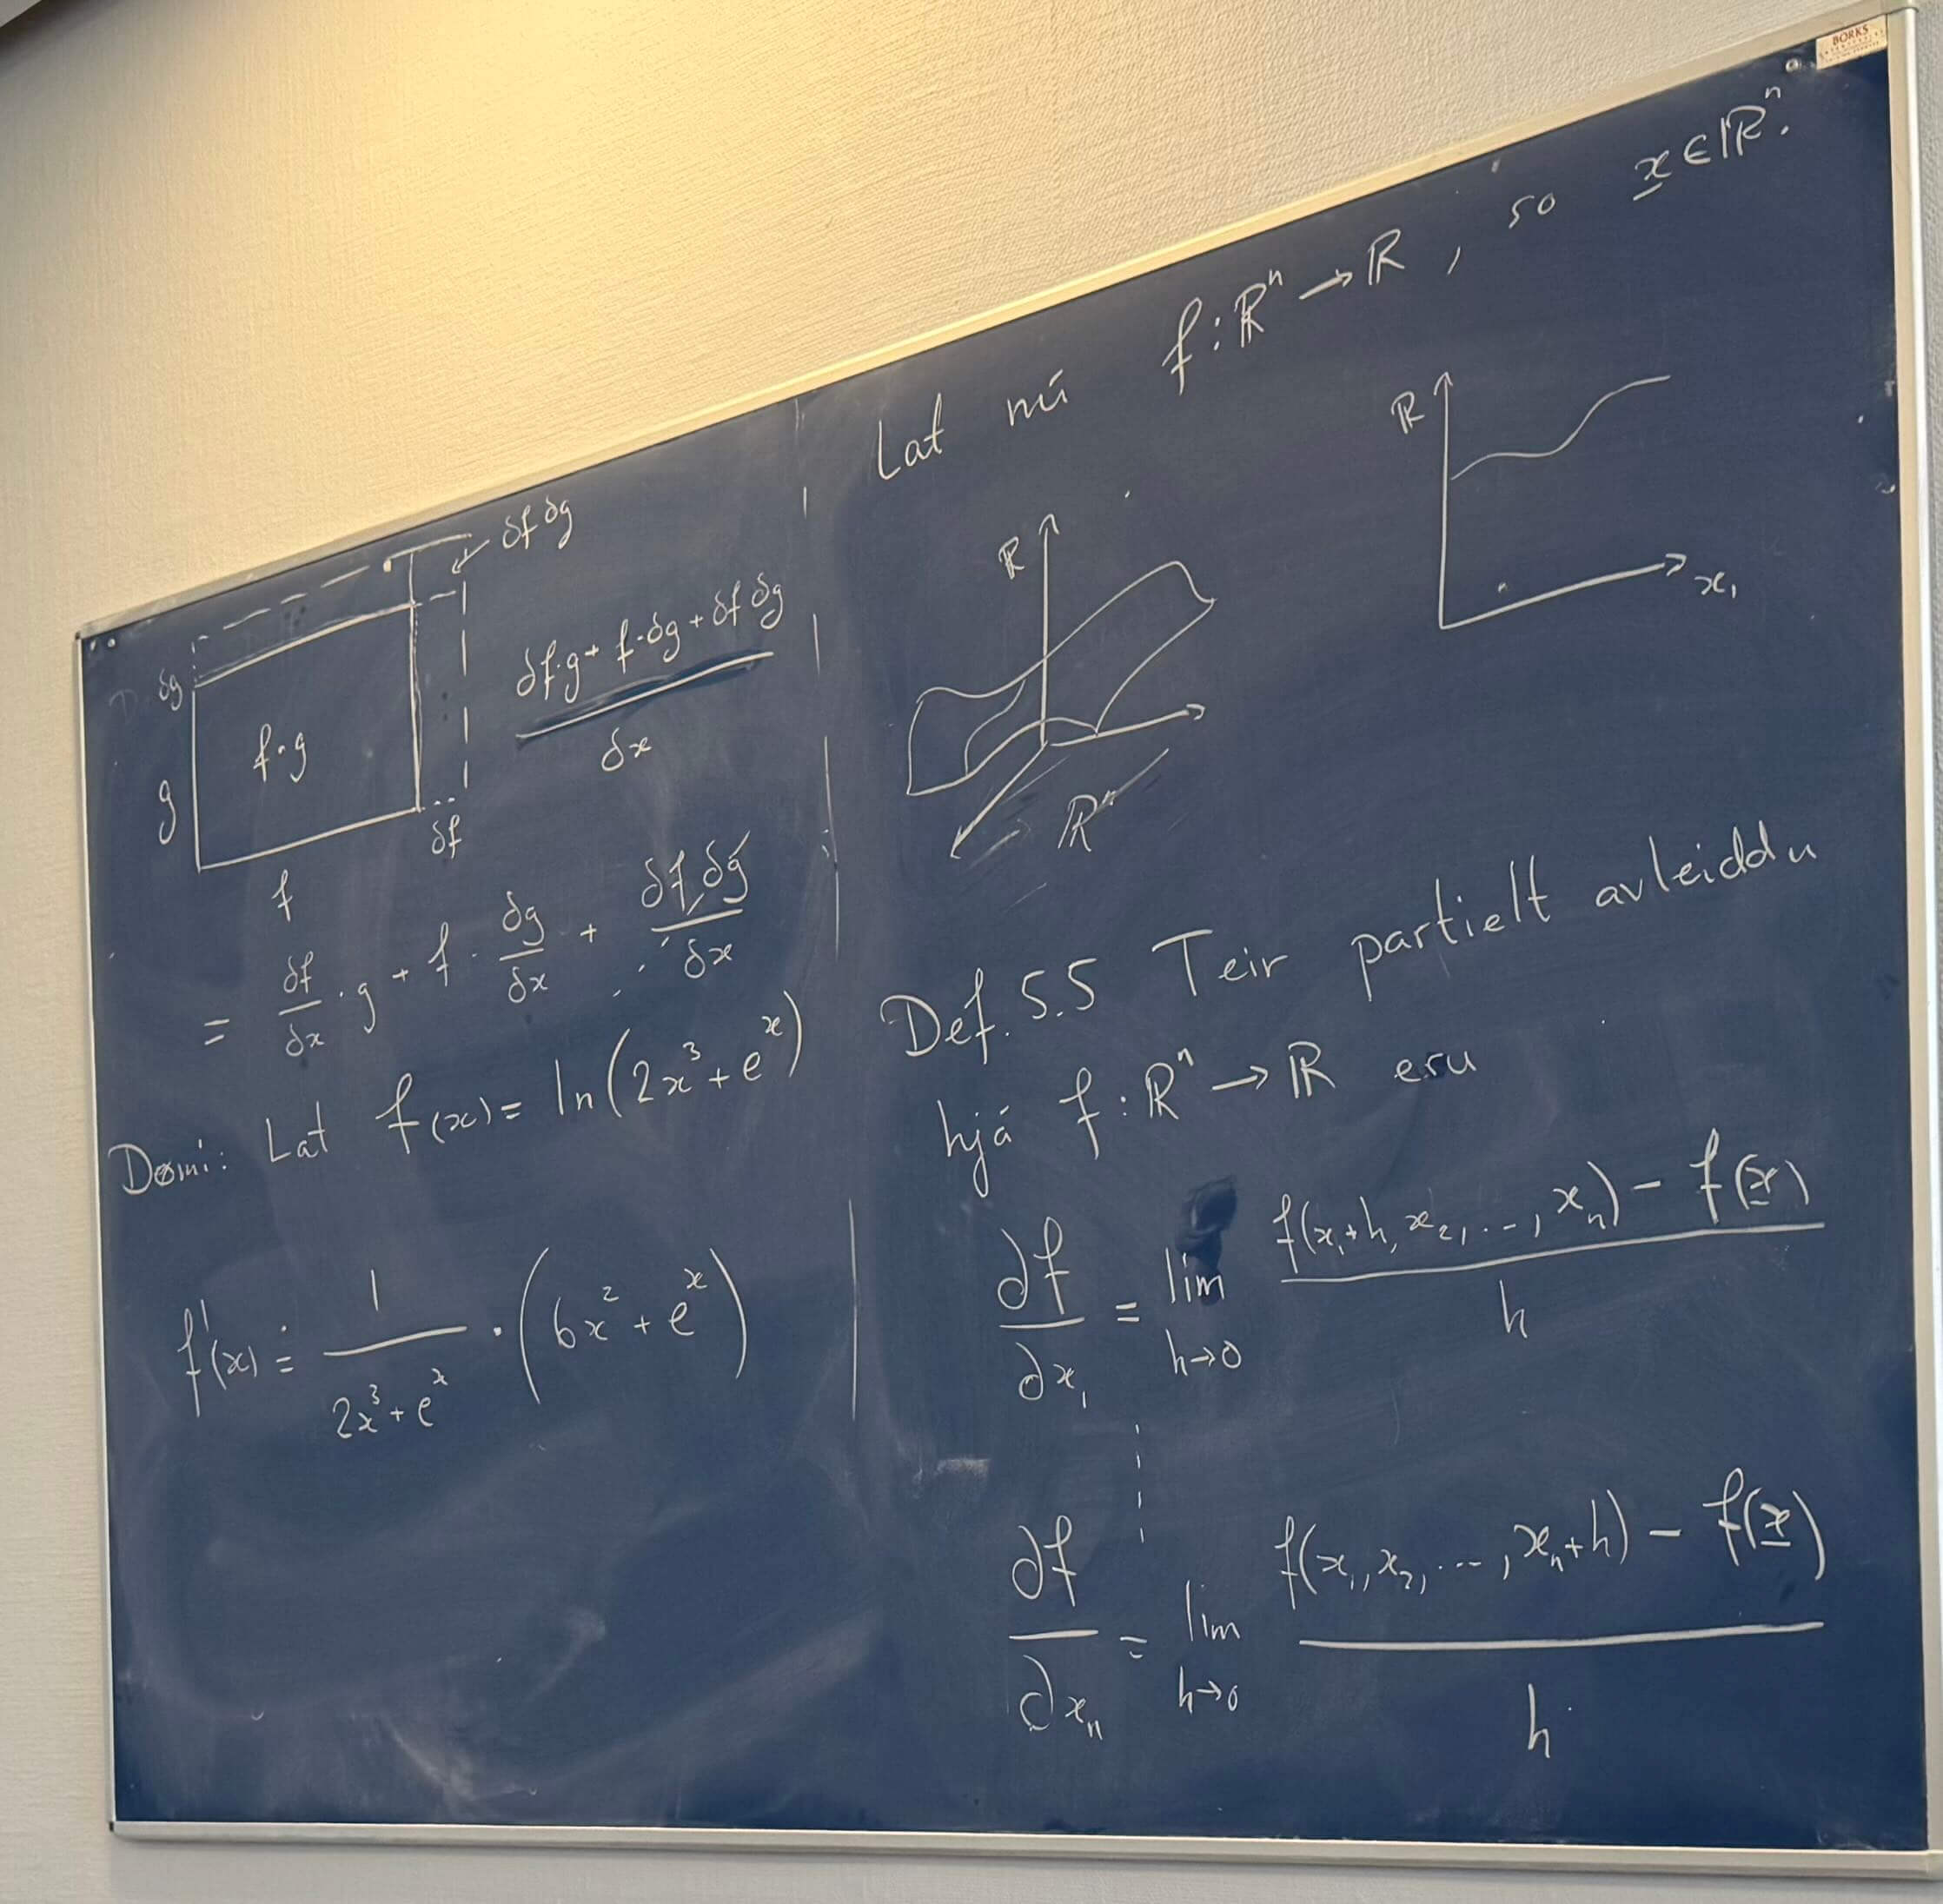 δf δg
δg
f·g
g
δf
f
δf·g + f·δg + δf δg
δx
= δf/δx · g + f · δg/δx + δf δg/δx
Dømi: Lat f(x) = ln(2x³ + eˣ)
f'(x) = 1/(2x³ + eˣ) · (6x² + eˣ)
Lat nú f: ℝⁿ → ℝ, so x ∈ ℝⁿ.
ℝ
ℝⁿ
ℝ
x₁
Def. 5.5 Teir partielt avleiddu
hjá f: ℝⁿ → ℝ eru
∂f/∂x₁ = lim h→0 (f(x₁+h, x₂, ..., xₙ) − f(x))/h
∂f/∂xₙ = lim h→0 (f(x₁, x₂, ..., xₙ+h) − f(x))/h
BORKS